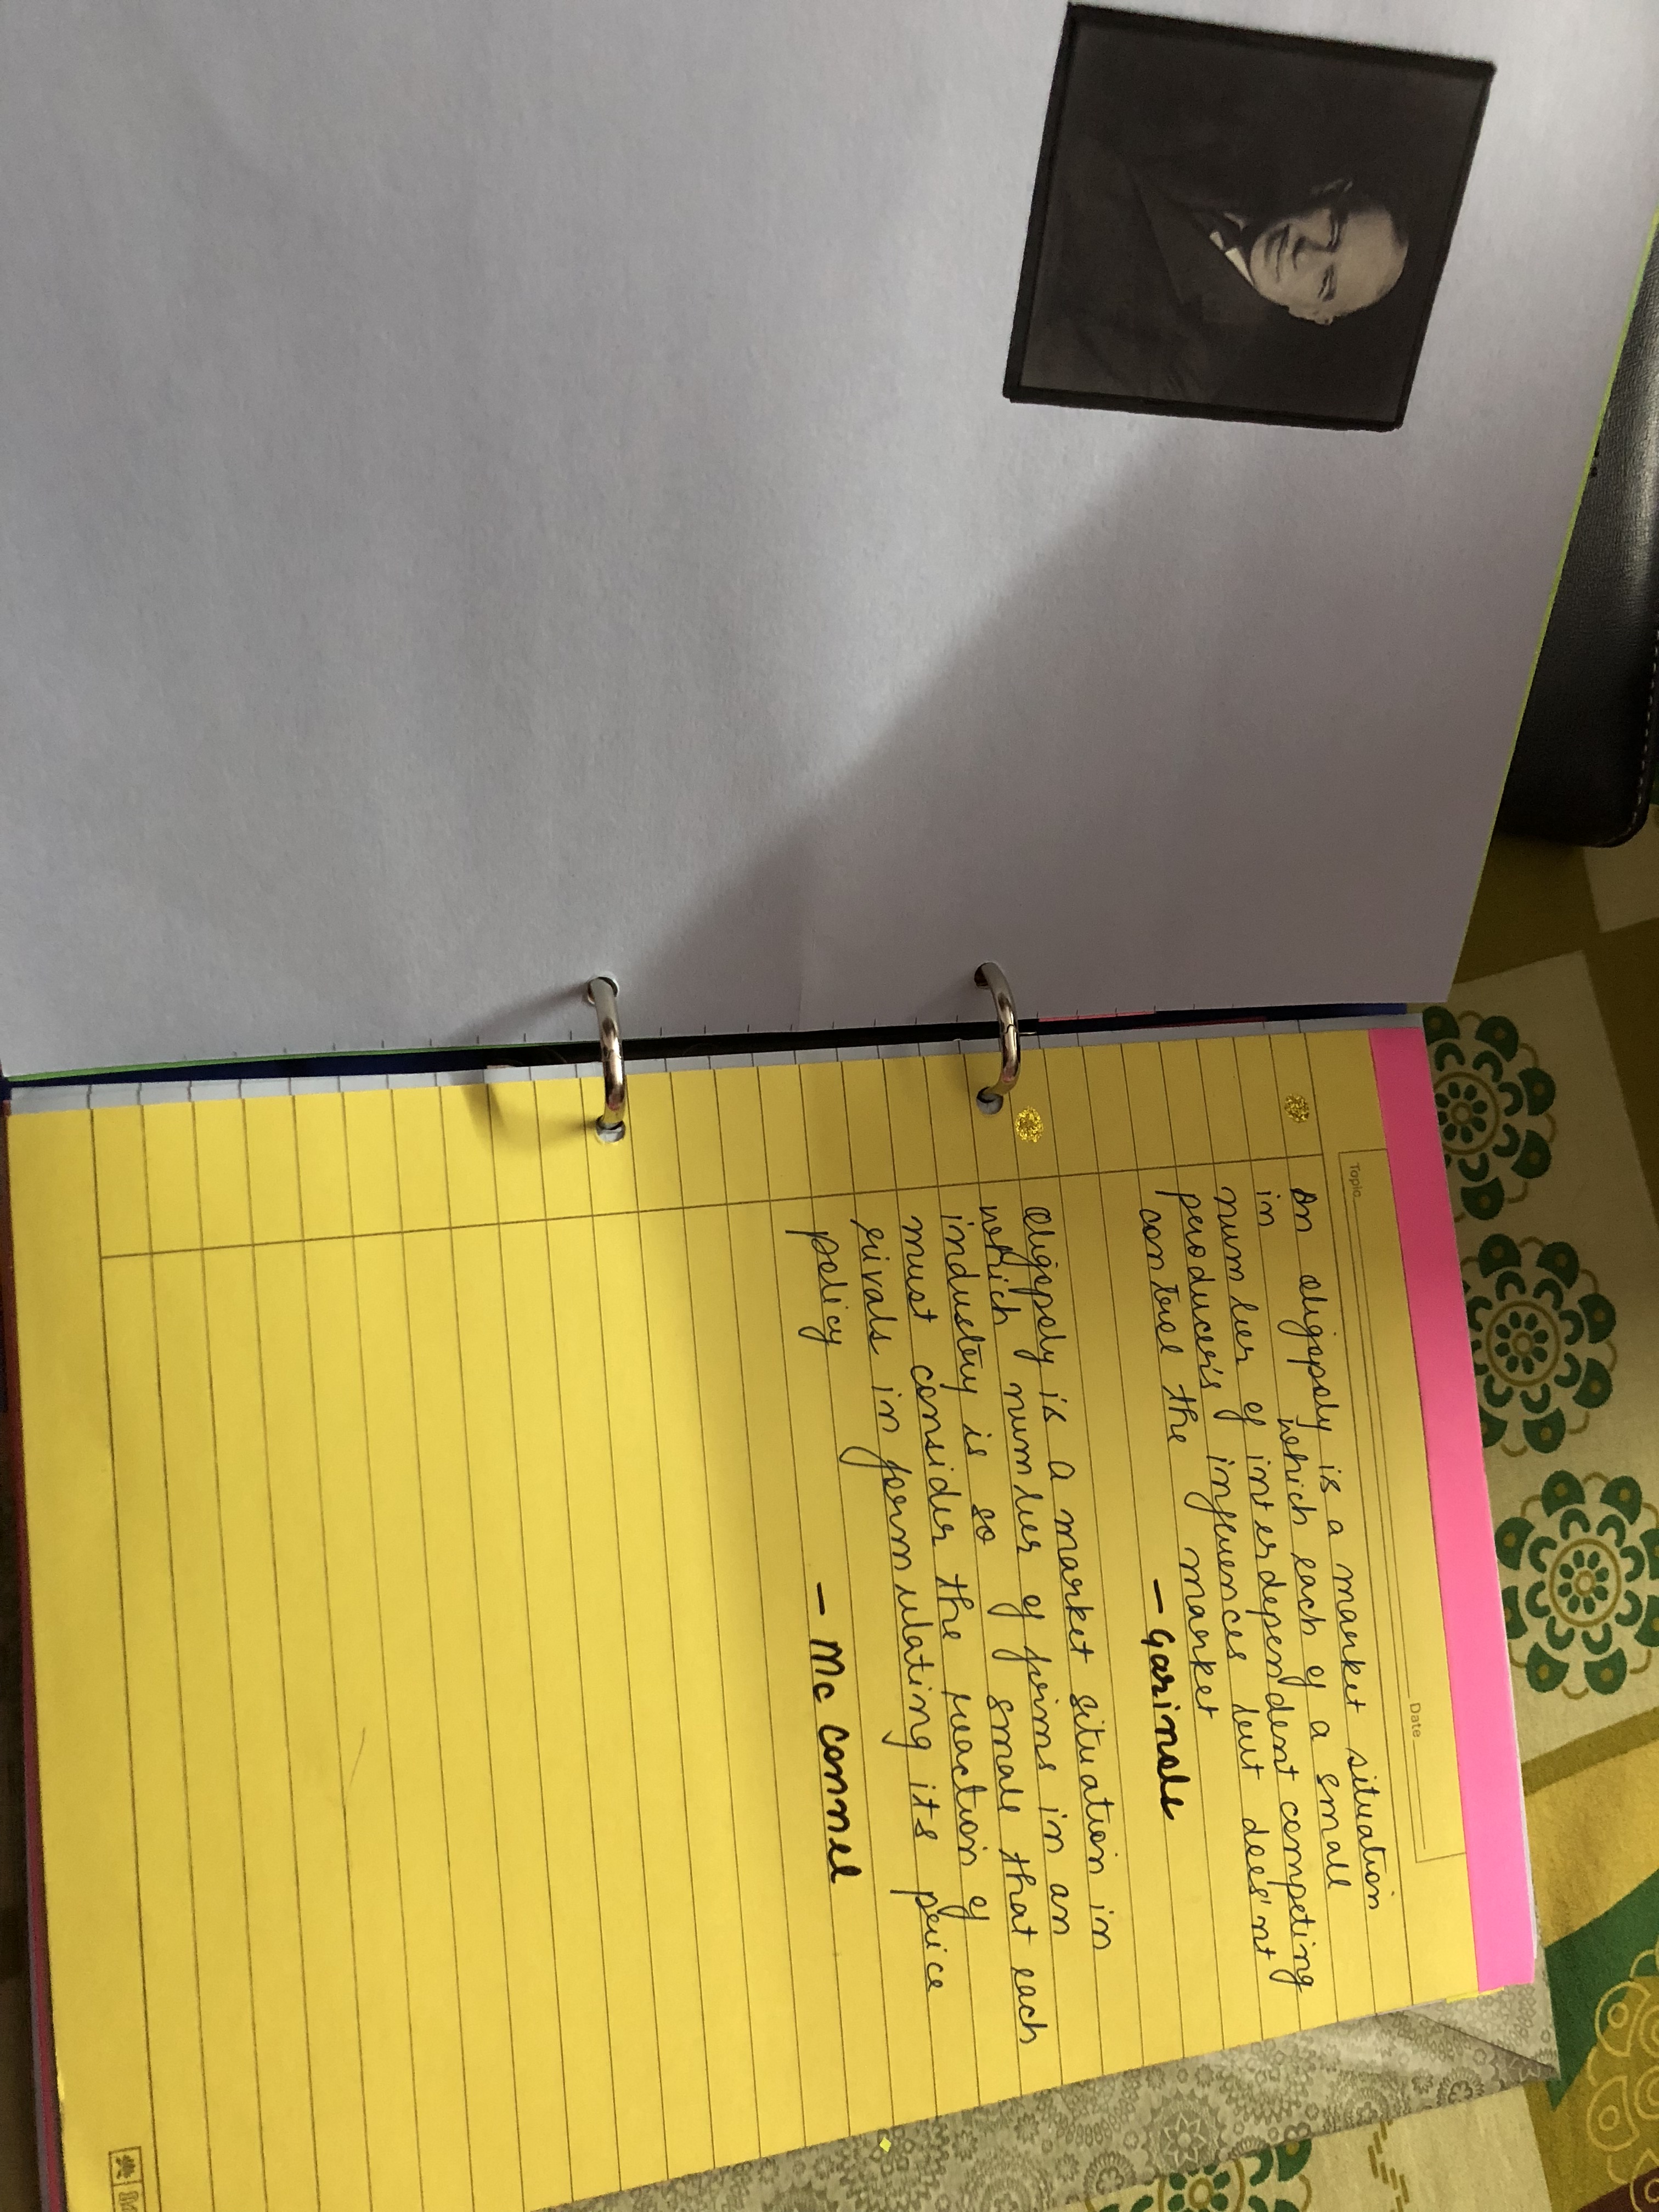 Topic
Date
An oligopoly is a market situation
in which each of a small
number of interdependent competing
producer's influences but does'nt
control the market
- Garinale
Oligopoly is a market situation in
which number of firms in an
industry is so small that each
must consider the reaction of
rivals in formulating its price
policy
- Mc connel